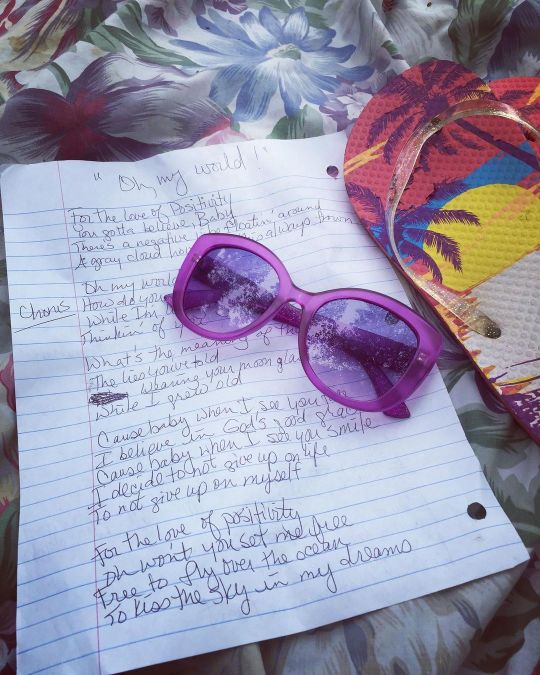 "Oh, my world!"
For the love of Positivity
You gotta believe, Baby
There's a negative floatin' around
A gray cloud always down
Oh my world
Chorus
How do you
While I'm
Thinkin' of
What's the meaning of the
The lies you've told
Wearing your moon
While I grew old
Cause baby when I see you
I believe in God's good
Cause baby when I see you smile
I decide to not give up on life
To not give up on myself
For the love of positivity
Oh won't you set me free
Free to fly over the ocean
To kiss the sky in my dreams